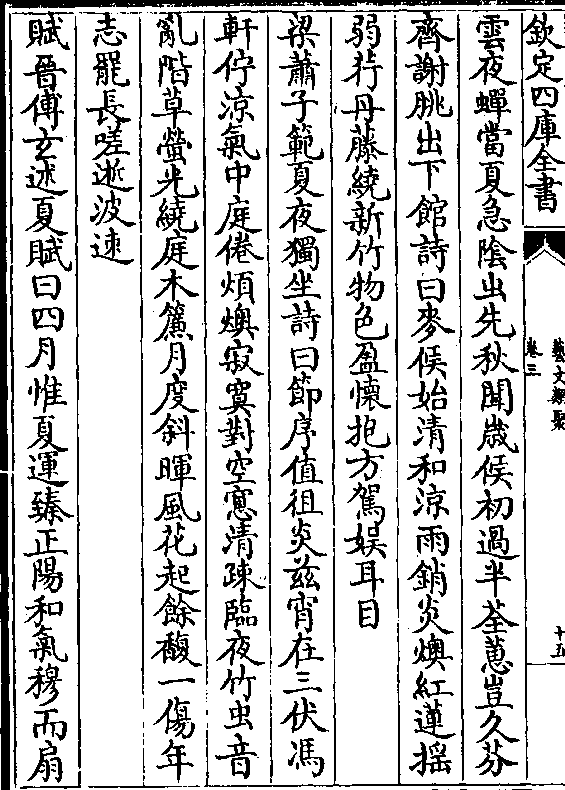 欽定四庫全書
藝文類聚
卷三
十五
雲夜蟬當夏急陰出先秋聞歲候初過半荃蕙豈久芬
齊謝朓出下館詩曰麥候始清和涼雨銷炎燠紅蓮揺
弱荇丹藤繞新竹物色盈懷抱方駕娯耳目
梁蕭子範夏夜獨坐詩曰節序值徂炎兹宵在三伏馮
軒佇涼氣中庭倦煩燠寂寞對空窻清疎臨夜竹虫音
亂階草螢光繞庭木簾月度斜暉風花起餘馥一傷年
志罷長嗟逝波速
賦晉傅玄述夏賦曰四月惟夏運臻正陽和氣穆而扇